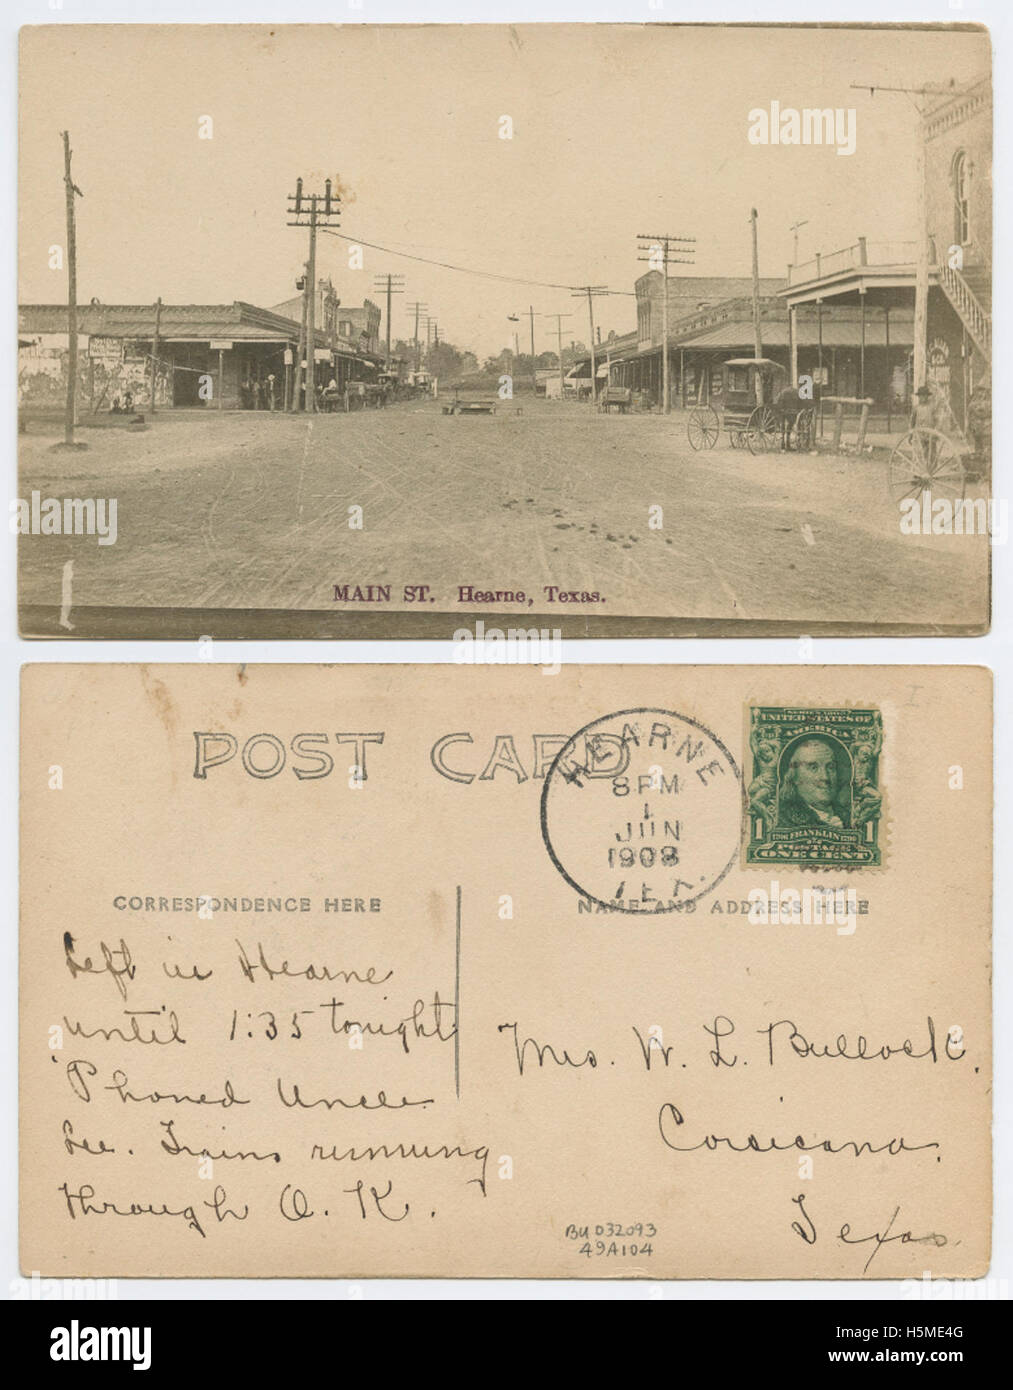 MAIN ST. Hearne, Texas.
POST CARD
HEARNE
8 PM
1
JUN
1908
TEX.
SERIES 1902
UNITED STATES OF
AMERICA
1 1706 FRANKLIN 1790 1
POSTAGE
ONE CENT
CORRESPONDENCE HERE
NAME AND ADDRESS HERE
Left in Hearne
until 1:35 tonight
'Phoned Uncle
Lee. Trains running
through O. K.
Mrs. W. L. Bullock.
Corsicana.
Texas.
BU 032093
49A104
a alamy
alamy
Image ID: H5ME4G
www.alamy.com